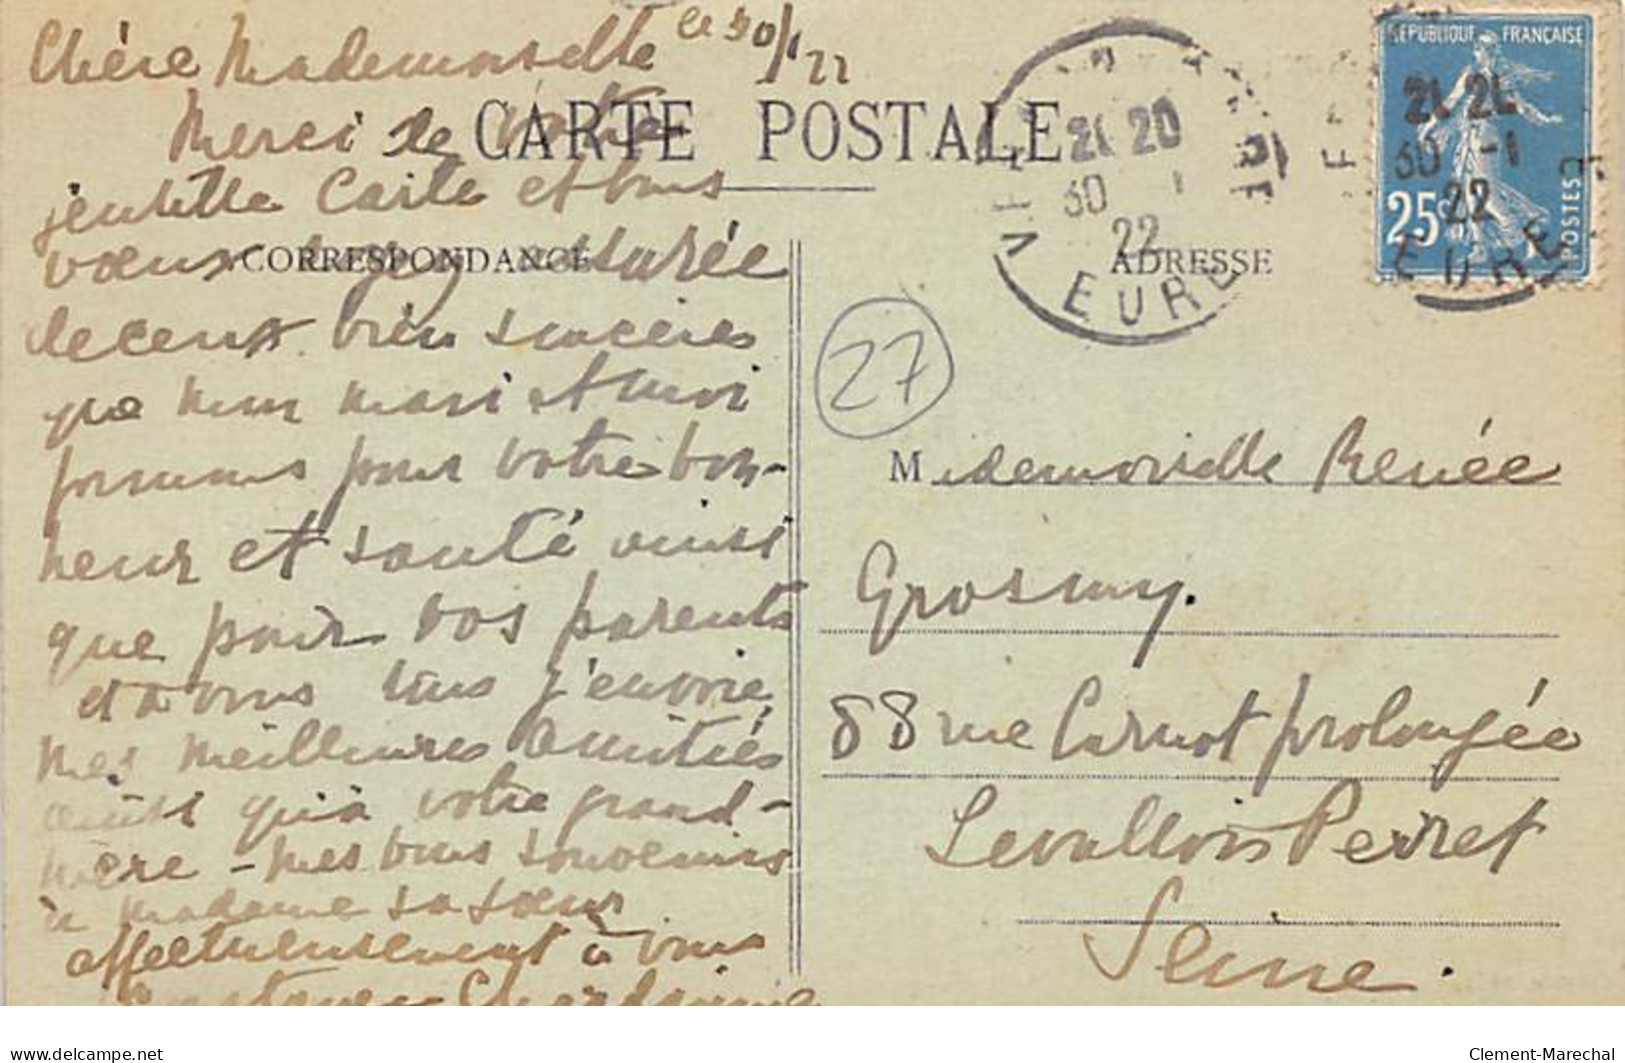 Chère Mademoiselle ce 30/1 22
Merci de votre
CARTE POSTALE
gentille Carte et bons
vœux soyez assurée
CORRESPONDANCE
ADRESSE
de ceux bien sincères
que mon mari et moi
formons pour votre bon-
heur et santé ainsi
que pour vos parents
et à vous tous j'envoie
mes meilleures amitiés
ainsi qu'à votre grand-
mère - mes bons souvenirs
à Madame sa sœur
affectueusement à vous
RÉPUBLIQUE FRANÇAISE
25c
POSTES
21 20
30 1
22
EURE
21 21
30 -1
22
EURE
27
Mademoiselle Renée
Grosmy.
88 rue Carnot prolongée
Levallois Perret
Seine.
delcampe.net
Clement-Marechal